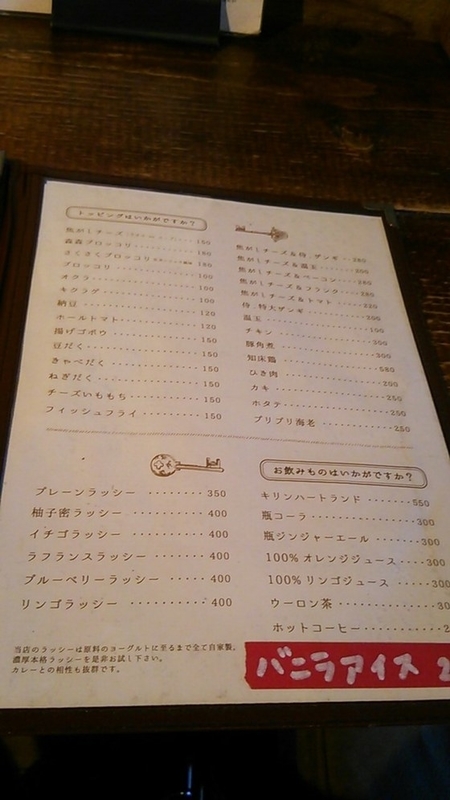 トッピングはいかがですか?
焦がしチーズ 150
森森ブロッコリー 180
さくさくブロッコリー 180
ブロッコリー 100
オクラ 100
キクラゲ 100
納豆 120
ホールトマト 120
揚げゴボウ 150
豆だく 150
きゃべだく 150
ねぎだく 150
チーズいももち 150
フィッシュフライ 150
焦がしチーズ&侍.ザンギ 280
焦がしチーズ&温玉 200
焦がしチーズ&ベーコン 280
焦がしチーズ&フランク 280
焦がしチーズ&トマト 220
侍.特大ザンギ
温玉 100
チキン 300
豚角煮 300
知床鶏 580
ひき肉 200
カキ 250
ホタテ 250
プリプリ海老 250
プレーンラッシー 350
柚子密ラッシー 400
イチゴラッシー 400
ラフランスラッシー 400
ブルーベリーラッシー 400
リンゴラッシー 400
当店のラッシーは原料のヨーグルトに至るまで全て自家製。
濃厚本格ラッシーを是非お試し下さい。
カレーとの相性も抜群です。
お飲みものはいかがですか?
キリンハートランド 550
瓶コーラ 300
瓶ジンジャーエール 300
100%オレンジジュース 300
100%リンゴジュース 300
ウーロン茶 30
ホットコーヒー 2
バニラアイス 2